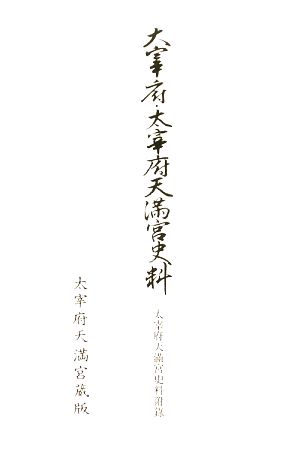 大宰府・太宰府天満宮史料
太宰府天満宮史料附錄
太宰府天満宮蔵版